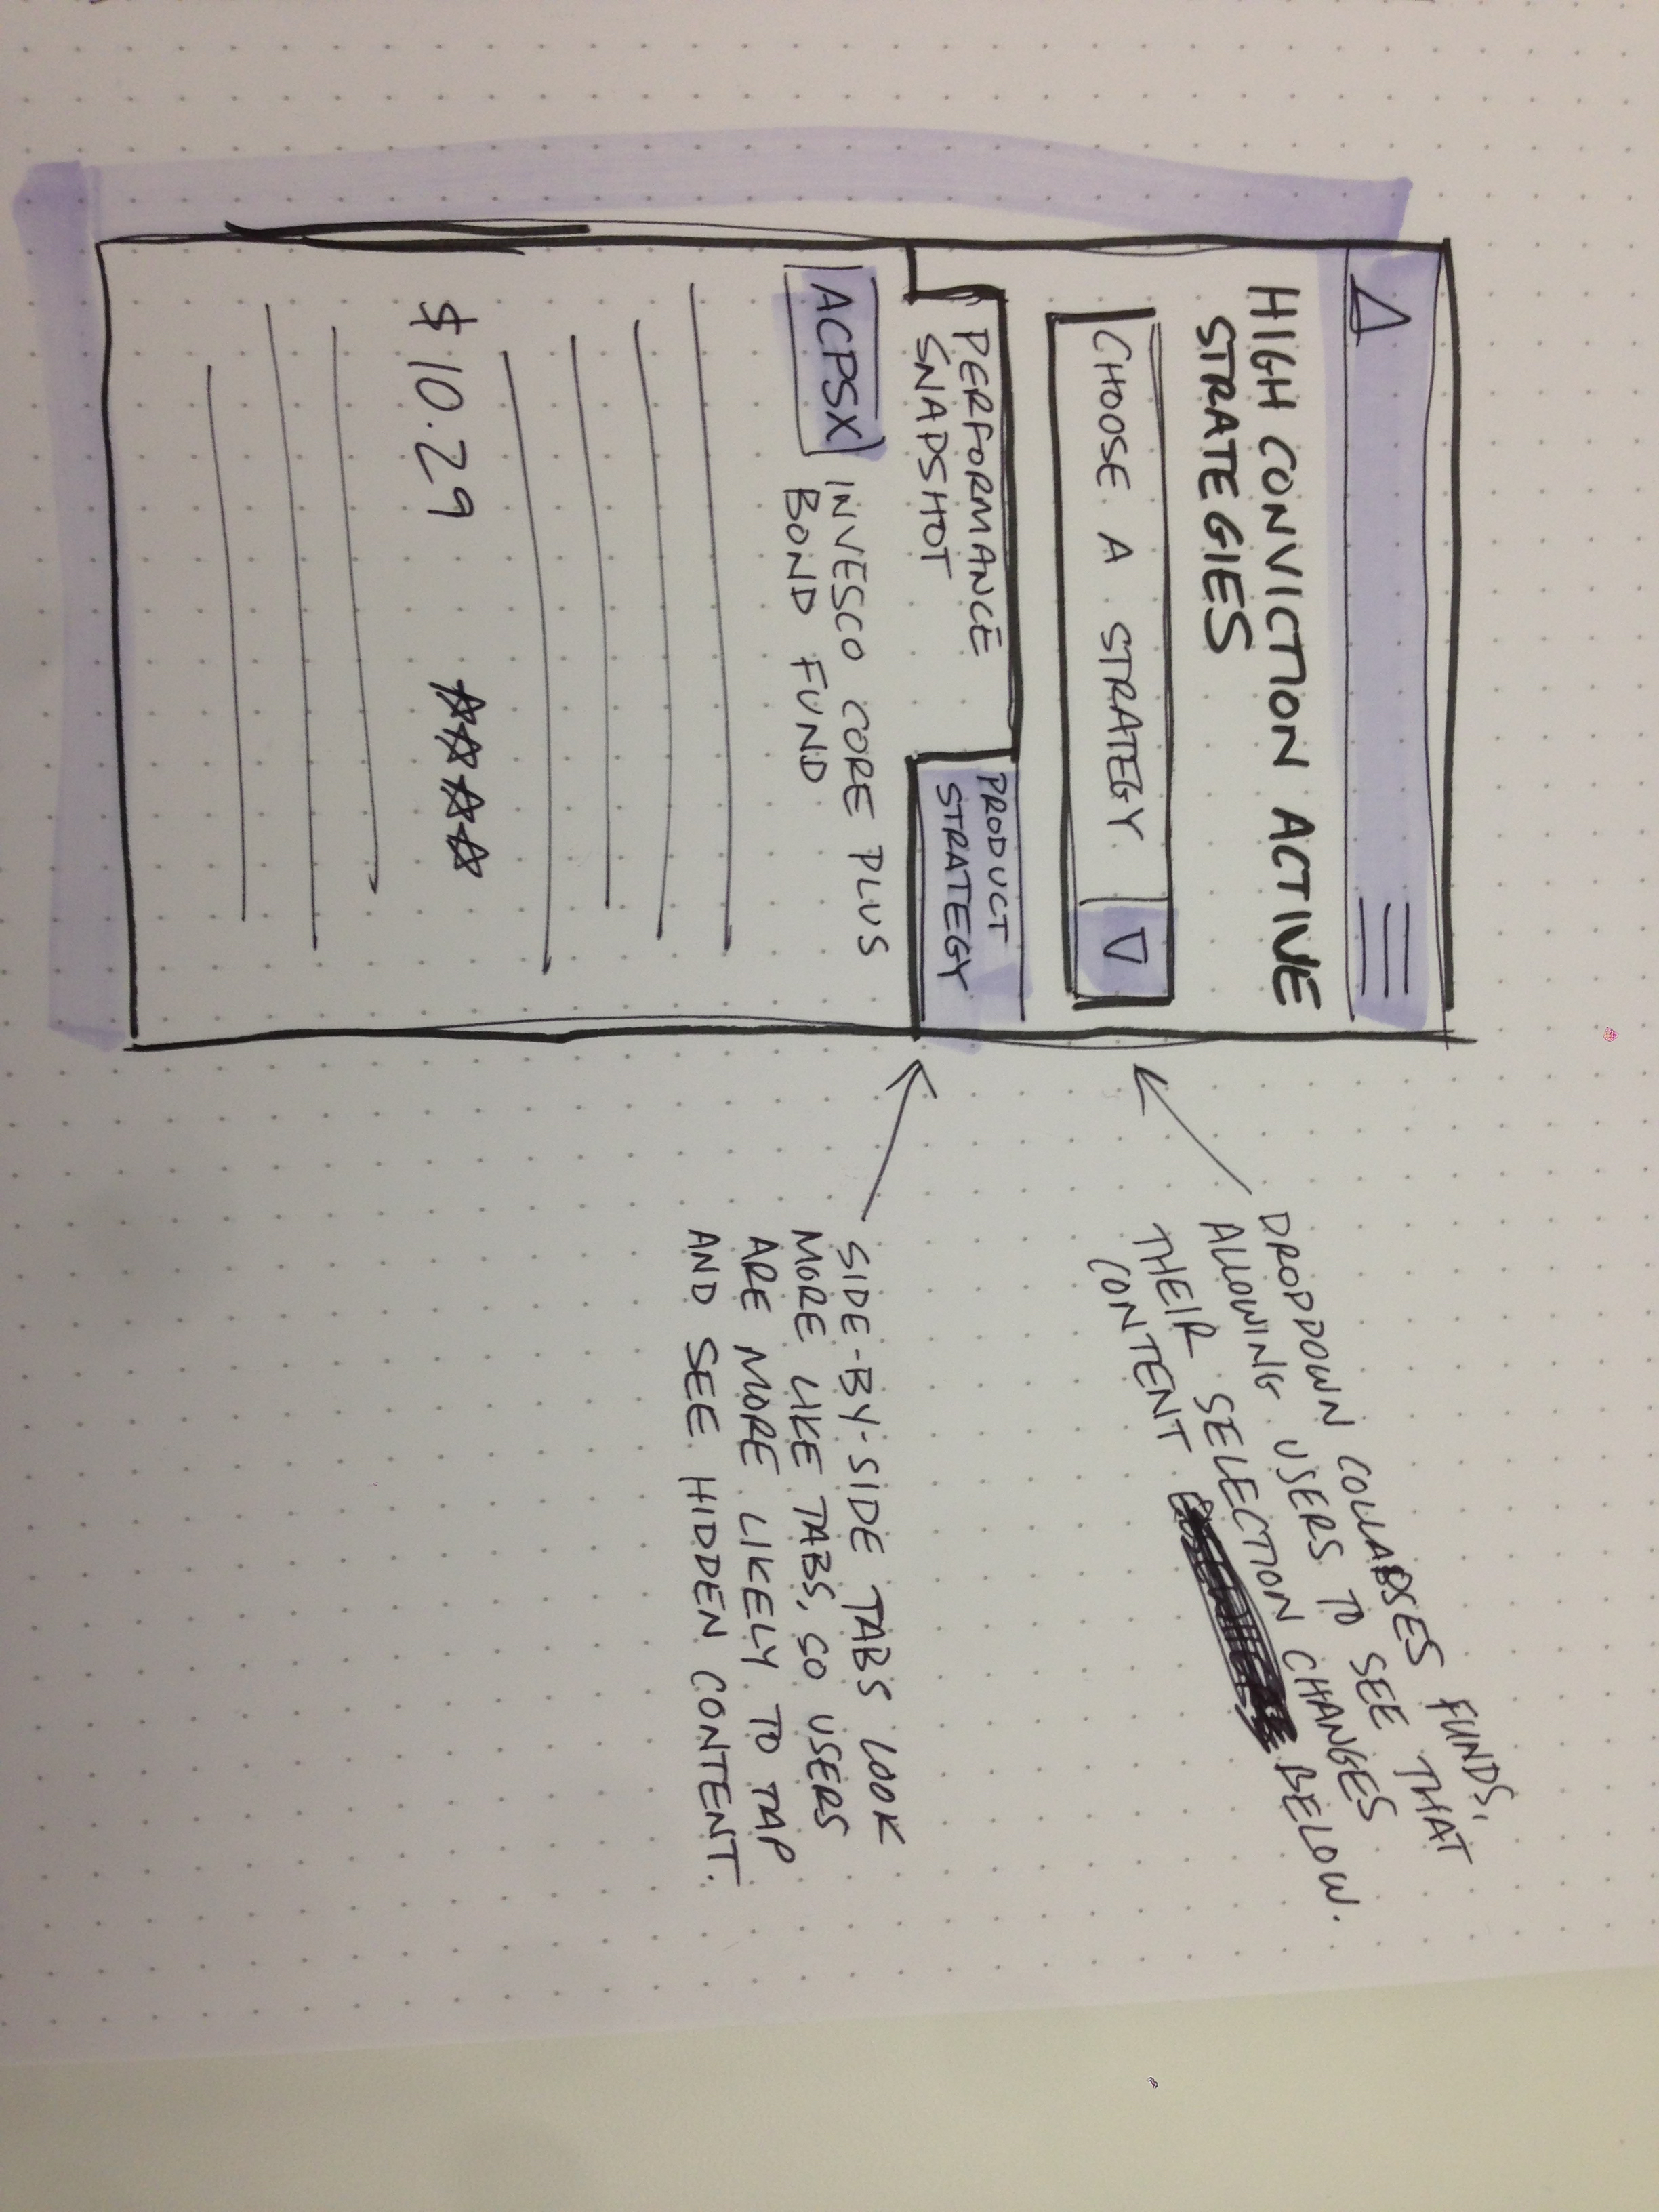 HIGH CONVICTION ACTIVE
STRATEGIES
CHOOSE A STRATEGY
PERFORMANCE
SNAPSHOT
PRODUCT
STRATEGY
ACPSX
INVESCO CORE PLUS
BOND FUND
$10.29
DROPDOWN COLLAPSES FUNDS,
ALLOWING USERS TO SEE THAT
THEIR SELECTION CHANGES
CONTENT BELOW.
SIDE-BY-SIDE TABS LOOK
MORE LIKE TABS, SO USERS
ARE MORE LIKELY TO TAP
AND SEE HIDDEN CONTENT.